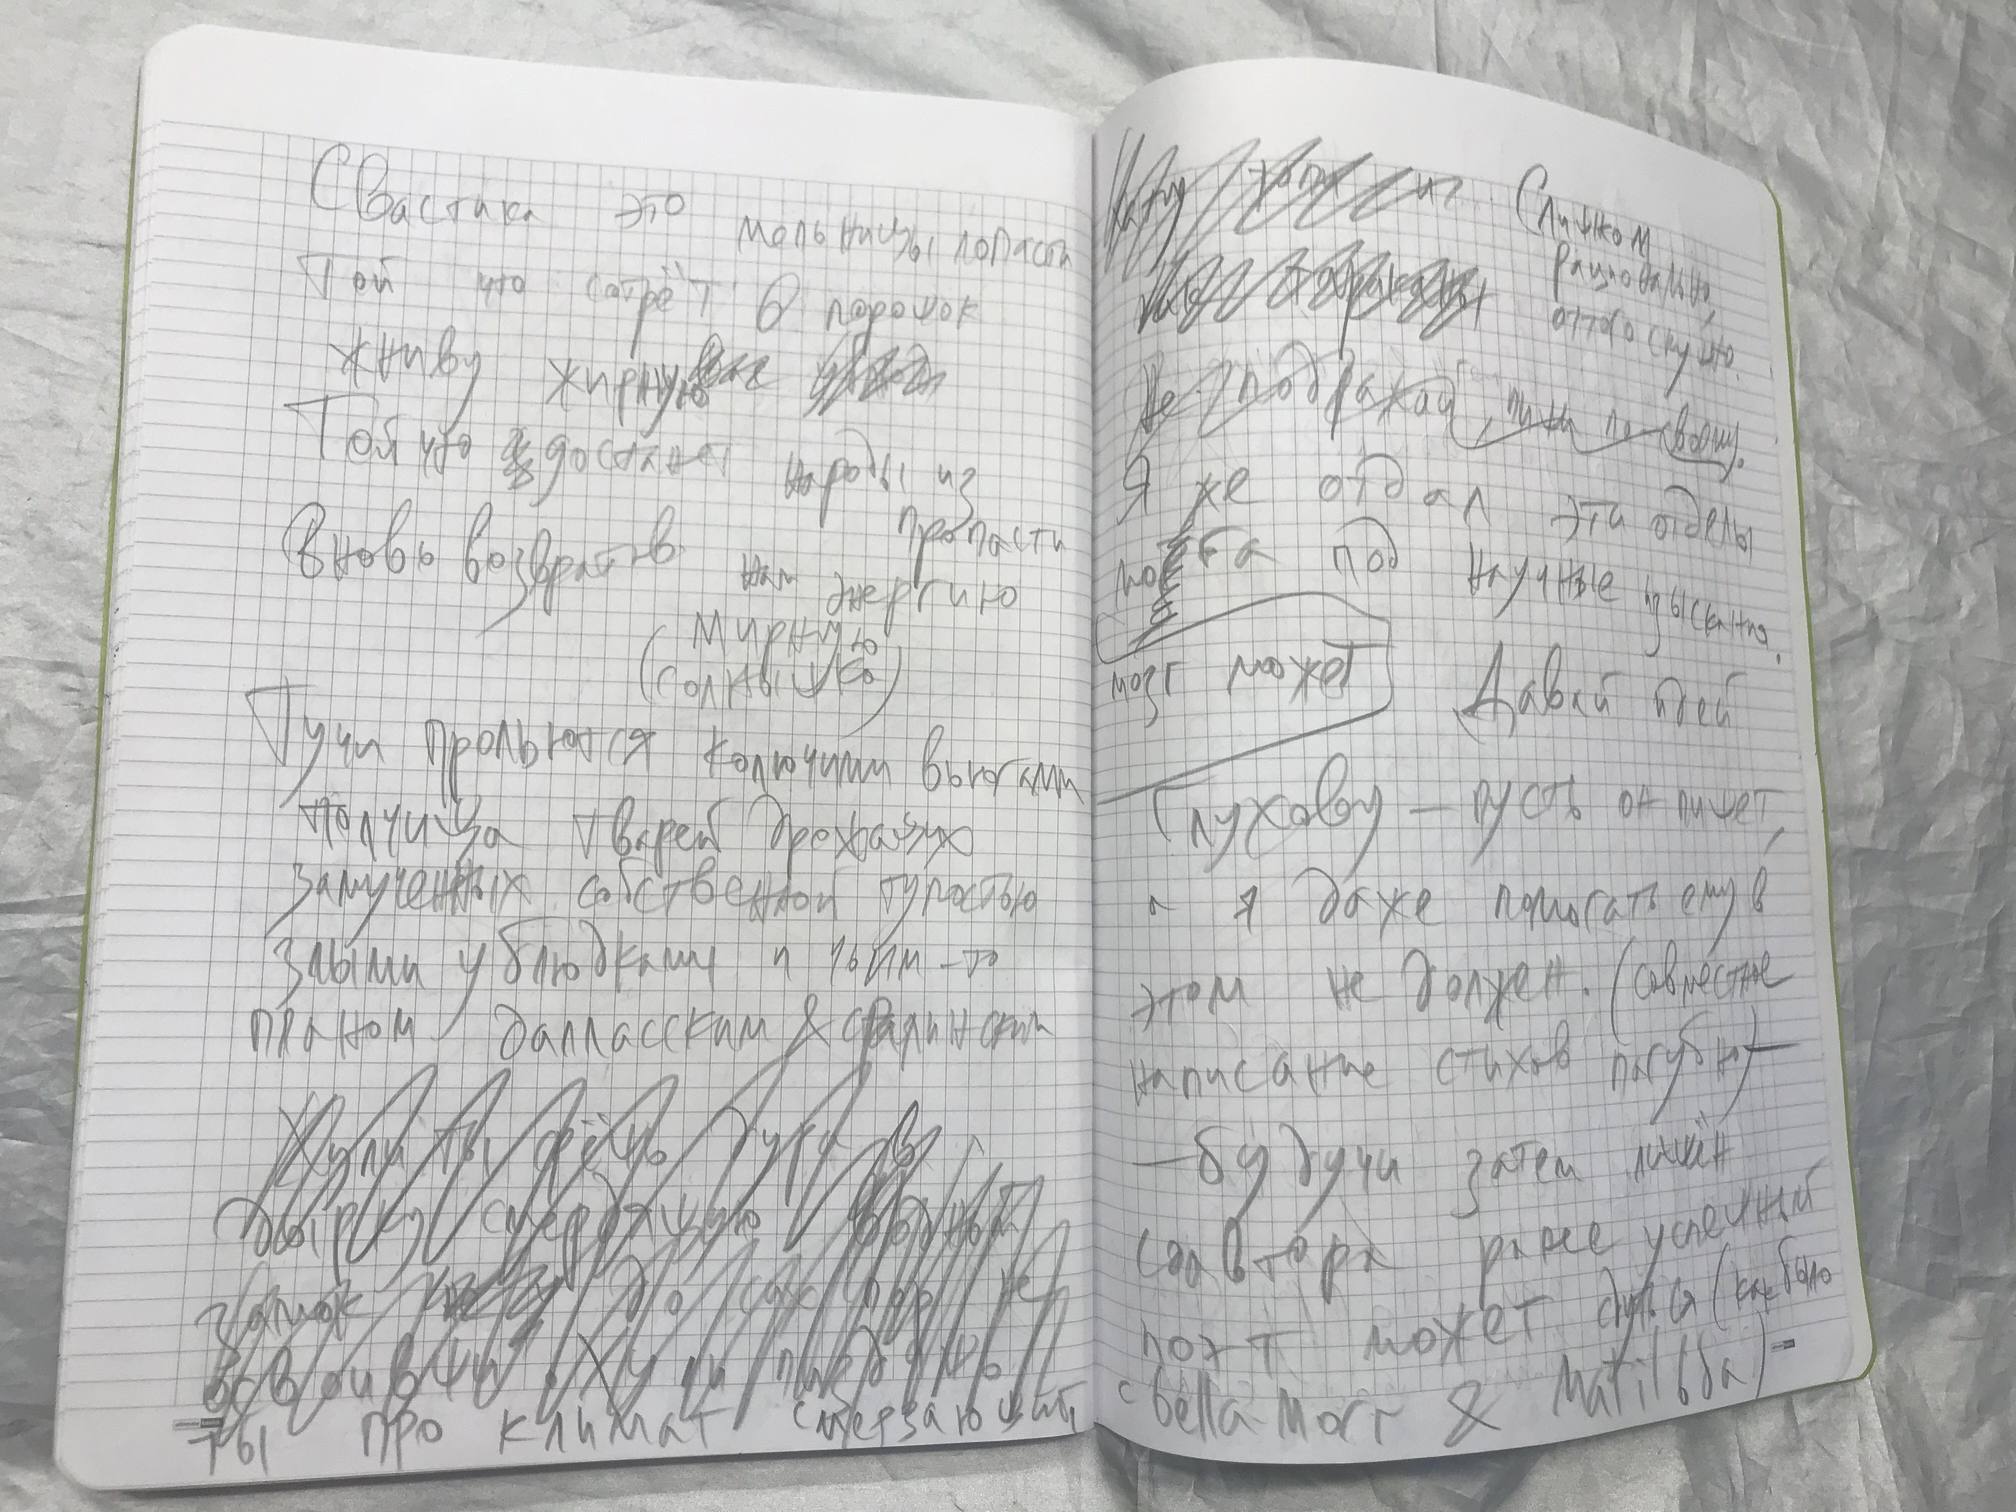 Свастика это мельницы лопасти
Той что сотрёт в порошок
жниву жирную
Той что достанет народы из
пропасти
Вновь возвратив нам энергию
мирную
(солнышко)
Тучи прольются колючими вьюгами
полчища тварей дрожащих
замученных собственной тупостью
злыми ублюдками и чьим-то
планом далласским & сталинским
Хули ты
дырку смердящую
до сих пор не
освоивши. Хули пиздишь
ты про климат смерзающий,
Слишком
рационально,
оттого скучно.
Не подражай, пиши по-своему.
Я же отдал эти отделы
мозга под научные изыскания.
мозг может
Давай идей
Глухову — пусть он пишет,
а я даже помогать ему в
этом не должен. (Совместное
написание стихов пагубно) —
— будучи затем лишён
соавтора ранее успешный
поэт может сдуться (как было
с Bella Morr & Matilьda)